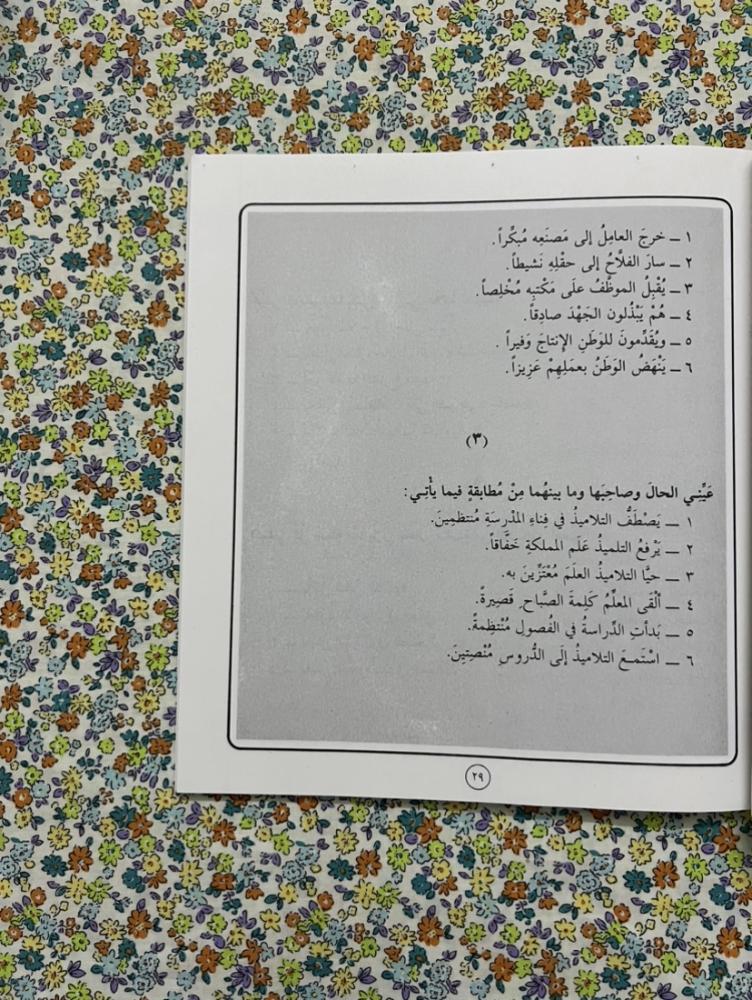 ١ ــ خرجَ العامِلُ إلى مَصنَعِه مُبكِّراً.
٢ ــ سارَ الفلاحُ إلى حقْلِهِ نَشيطاً.
٣ ــ يُقْبِلُ الموظَّفُ علَى مَكْتبِه مُخْلِصاً.
٤ ــ هُمْ يَبْذُلون الجَهْدَ صادِقاً.
٥ ــ ويُقَدِّمونَ للوَطَنِ الإِنتاجَ وَفيراً .
٦ ــ يَنْهَضُ الوَطَنُ بعمَلِهِمْ عَزِيزاً.
(٣)
عَيِّنِي الحالَ وصاحِبَها وما بينهُما مِنْ مُطابقةٍ فيما يأْتِي:
١ ــ يَصْطَفُّ التلاميذُ في فِناءِ المدْرسَةِ مُنتظمِينَ.
٢ ــ يَرْفعُ التلميذُ عَلَم المملكةِ خَفَّاقاً.
٣ ــ حيَّا التلاميذُ العلَمَ مُعْتَزِّينَ به.
٤ ــ ألْقَى المعلِّمُ كَلِمةَ الصَّباحِ قَصِيرةً.
٥ ــ بَدأتِ الدِّراسةُ في الفُصولِ مُنْتظِمةً.
٦ ــ اسْتمعَ التلاميذُ إلَى الدُّروسِ مُنْصِتِينَ.
٢٩